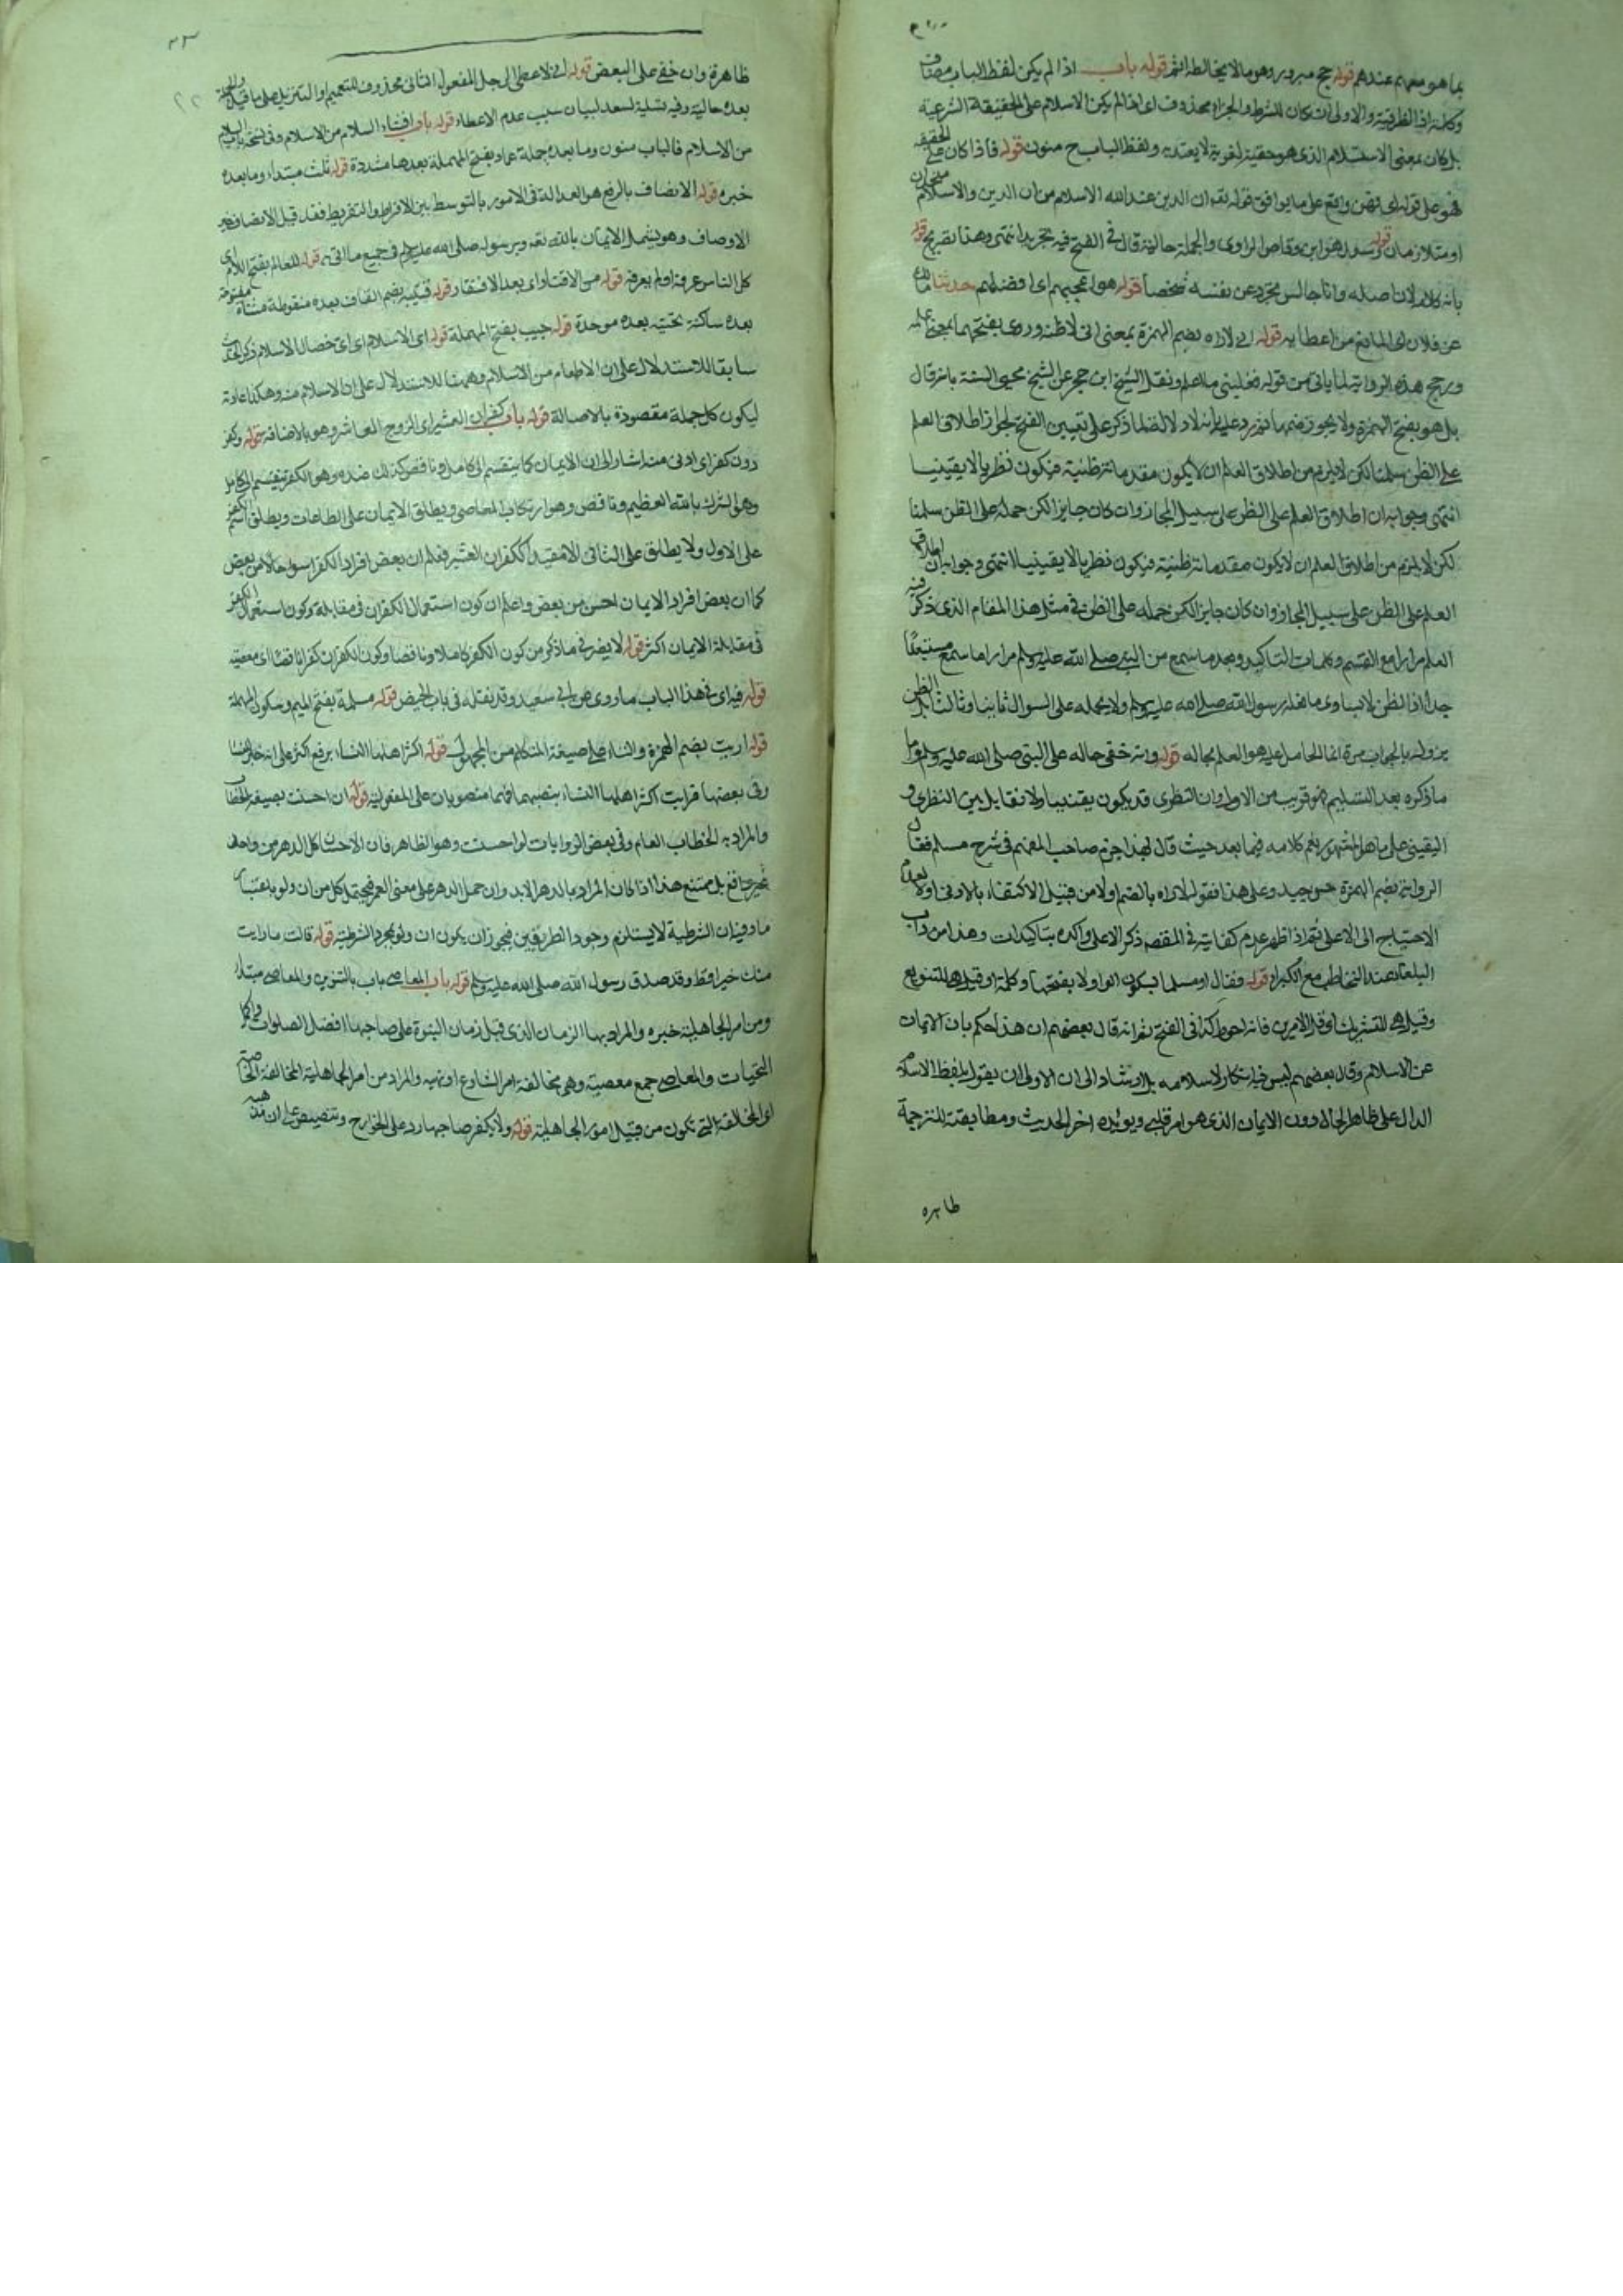 بما هو معهم عندهم قوله حج مبرور وهو ما لا يخالطه اثم قوله باب اذا لم يكن لفظ الباب مضاف
وكلمة اذا الظرفية والاولى ان تكان للشرط والجزاء محذوف اى اذا لم يكن الاسلام على الحقيقة الشرعية
بل كان بمعنى الاستسلام الذى هو حقيقة لغوية لا يعتد به ولفظ الباب ح منون قوله فاذا كان على الحقيقة
فهو على قوله اى فهو واقع على ما يوافق قوله تعه ان الدين عند الله الاسلام من ان الدين والاسلام متحدان
او متلازمان قوله وسعد هو ابن وقاص الراوى والجملة حالية قال فى الفتح فيه تجريد انتهى وهذا تصريح قوله
بانه كلام لان اصله وانا جالس تجرد عن نفسه شخصا قوله هو اعجبهم اى افضلهم حدثنا مالك
عن فلان اى المانع من اعطايه قوله انى لاراه بضم الهمزة بمعنى انى لاظنه وروى بفتحها بمعنى اعلمه
ورجح هذه الرواية لما ياتى من قوله فغلبنى ما اعلم ونقل الشيخ ابن حجر عن الشيخ محيى السنة بانه قال
بل هو بفتح الهمزة ولا يجوز ضمها ثم رد عليه بانه لا دلالة لما ذكر على تعيين الفتح لجواز اطلاق العلم
على الظن سلمنا لكن لا يلزم من اطلاق العلم ان لا يكون مقدماته ظنية فيكون نظريا لا يقينيا
انتهى وجوابه ان اطلاق العلم على الظن على سبيل المجاز وان كان جايز لكن حمله على الظن سلمنا
لكن لا يلزم من اطلاق العلم ان لا يكون مقدماته ظنية فيكون نظريا لا يقينيا انتهى وجوابه ان اطلاق
العلم على الظن على سبيل المجاز وان كان جايز لكن حمله على الظن فى مثل هذا المقام الذى ذكر فيه
العلم مرارا مع القسم وكلمات التاكيد وبعد ما سمع من النبى صلى الله عليه وسلم مرارا ما سمع مستبعد
جدا اذ الظن لا يساوى ما فعله رسول الله صلى الله عليه وسلم ولا يحمله على السوال ثانيا وثالثا الظن
يزول بالجواب مرة انما الحامل عليه هو العلم بحاله قوله وانه خفى حاله على النبى صلى الله عليه وسلم واما
ما ذكره بعد التسليم فهو قريب من الاول وان النظرى قد يكون يقينيا ولا تقابل بين النظرى و
اليقينى على ما هو المشهور نعم كلامه فيما بعد حيث قال لهذا جزم صاحب المفهم فى شرح مسلم فقال
الرواية بضم الهمزة حسن جيد وعلى هذا فقوله لاراه بالضم اولا من قبيل الاكتفاء بالادنى اولا لعدم
الاحتياج الى الاعلى ثم اذا ظهر عدم كفايته فى المقصد ذكر الاعلى واكده بتاكيدات وهذا من داب
البلغا عند التخاطب مع الكبراء قوله فقال او مسلما بسكون الواو لا بفتحها وكلمة او قيل هى للتنويع
وقيل هى للتشريك او قل الامرين فانه احوط كذا فى الفتح ثم انه قال بعضهم ان هذا حكم بان الايمان
عن الاسلام وقال بعضهم ليس فيه انكار لاسلامه بل ارشاد الى ان الاولى ان يقول بلفظ الاسلام
الدال على ظاهر الحال دون الايمان الذى هو امر قلبى ويويده اخر الحديث ومطابقته للترجمة
طاهره
ظاهرة وان خفى على البعض قوله انى لاعطى الرجل المفعول الثانى محذوف للتعميم او التنزيل على ما قيل والجملة
بعده حالية وفيه تسلية لسعد لبيان سبب عدم الاعطاء قوله باب افشاء السلام من الاسلام وفى نسخة باب السلام
من الاسلام فالباب منون وما بعده جملة عمار بفتح المهملة بعدها مشددة قوله ثلث مبتداء وما بعده
خبره قوله الانصاف بالرفع هو العدالة فى الامور بالتوسط بين الافراط والتفريط فقد قيل الانصاف خير
الاوصاف وهو يشمل الايمان بالله تعه وبرسوله صلى الله عليه وسلم فى جميع ما اتى به قوله للعالم بفتح اللام اى
كل الناس عرفه او لم يعرفه قوله من الاقتار اى بعد الافتقار قوله قتيبة بضم القاف بعده منقوطة مثناة مفتوحة
بعده ساكنة تحتية بعده موحدة قوله حبيب بفتح المهملة قوله اى الاسلام اى اى خصال الاسلام ذكر الحديث
سابقا للاستدلال على ان الاطعام من الاسلام وههنا للاستدلال على ان الاسلام منه وهكذا عادته
ليكون كل جملة مقصودة بالاصالة قوله باب كفران العشير اى الزوج المعاشر وهو بالاضافة قوله وكفر
دون كفر اى ادنى منه اشار الى ان الايمان كما ينقسم الى كامل وناقص كذلك ضده وهو الكفر ينقسم الى كامل
وهو الشرك بالله العظيم وناقص وهو ارتكاب المعاصى ويطلق الايمان على الطاعات ويطلق اسم الكفر
على الاول ولا يطلق على الثانى الا مقيدا ككفران العشير فعلم ان بعض افراد الكفر اسوا حالا من بعض
كما ان بعض افراد الايمان احسن من بعض واعلم ان كون استعمال الكفران فى مقابلة وكون استعمال الكفر
فى مقابلة الايمان اكثر قوله لا يضر فى ما ذكر من كون الكفر كاملا وناقصا وكون الكفران كفرا ناقصا اى معصية
قوله فيه اى فى هذا الباب ما روى عن ابى سعيد وقد نقله فى باب الحيض قوله مسلمة بفتح الميم وسكون المهملة
قوله اريت بضم الهمزة والتاء على صيغة المتكلم من المجهول قوله اكثر اهلها النساء برفع اكثر على انه خبر
وفى بعضها فرايت اكثر اهلها النساء بنصبهما فهما منصوبان على المفعولية قوله ان احسنت بصيغة الخطاب
والمراد به الخطاب العام وفى بعض الروايات لو احسنت وهو الظاهر فان الاحسان كل الدهر من واحد
غير واقع بل ممتنع هذا اذا كان المراد بالدهر الابد وان حمل الدهر على معنى العمر فيحتمل كل من ان ولو باعتبار
مادة فان الشرطية لا يستلزم وجود الطرفين فيجوز ان يكون ان ولو لمجرد الشرطية قوله قالت ما رايت
منك خيرا قط وقد صدق رسول الله صلى الله عليه وسلم قوله باب المعاصى باب بالتنوين والمعاصى مبتداء
ومن امر الجاهلية خبره والمراد بها الزمان الذى قبل زمان النبوة على صاحبها افضل الصلوات واكمل
التحيات والمعاصى جمع معصية وهى مخالفة امر الشارع او نهيه والمراد من امر الجاهلية المخالفة
اى الاخلاق التى تكون من قبيل امور الجاهلية قوله ولا يكفر صاحبها رد على الخوارج وتنصيص على ان مذهبه